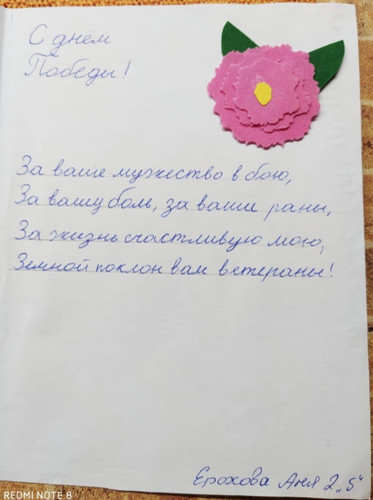 С днём
Победы!
За ваше мужество в бою,
За вашу боль, за ваши раны,
За жизнь счастливую мою,
Земной поклон вам ветераны!
Ерохова Аня 2 „Б“
REDMI NOTE 8